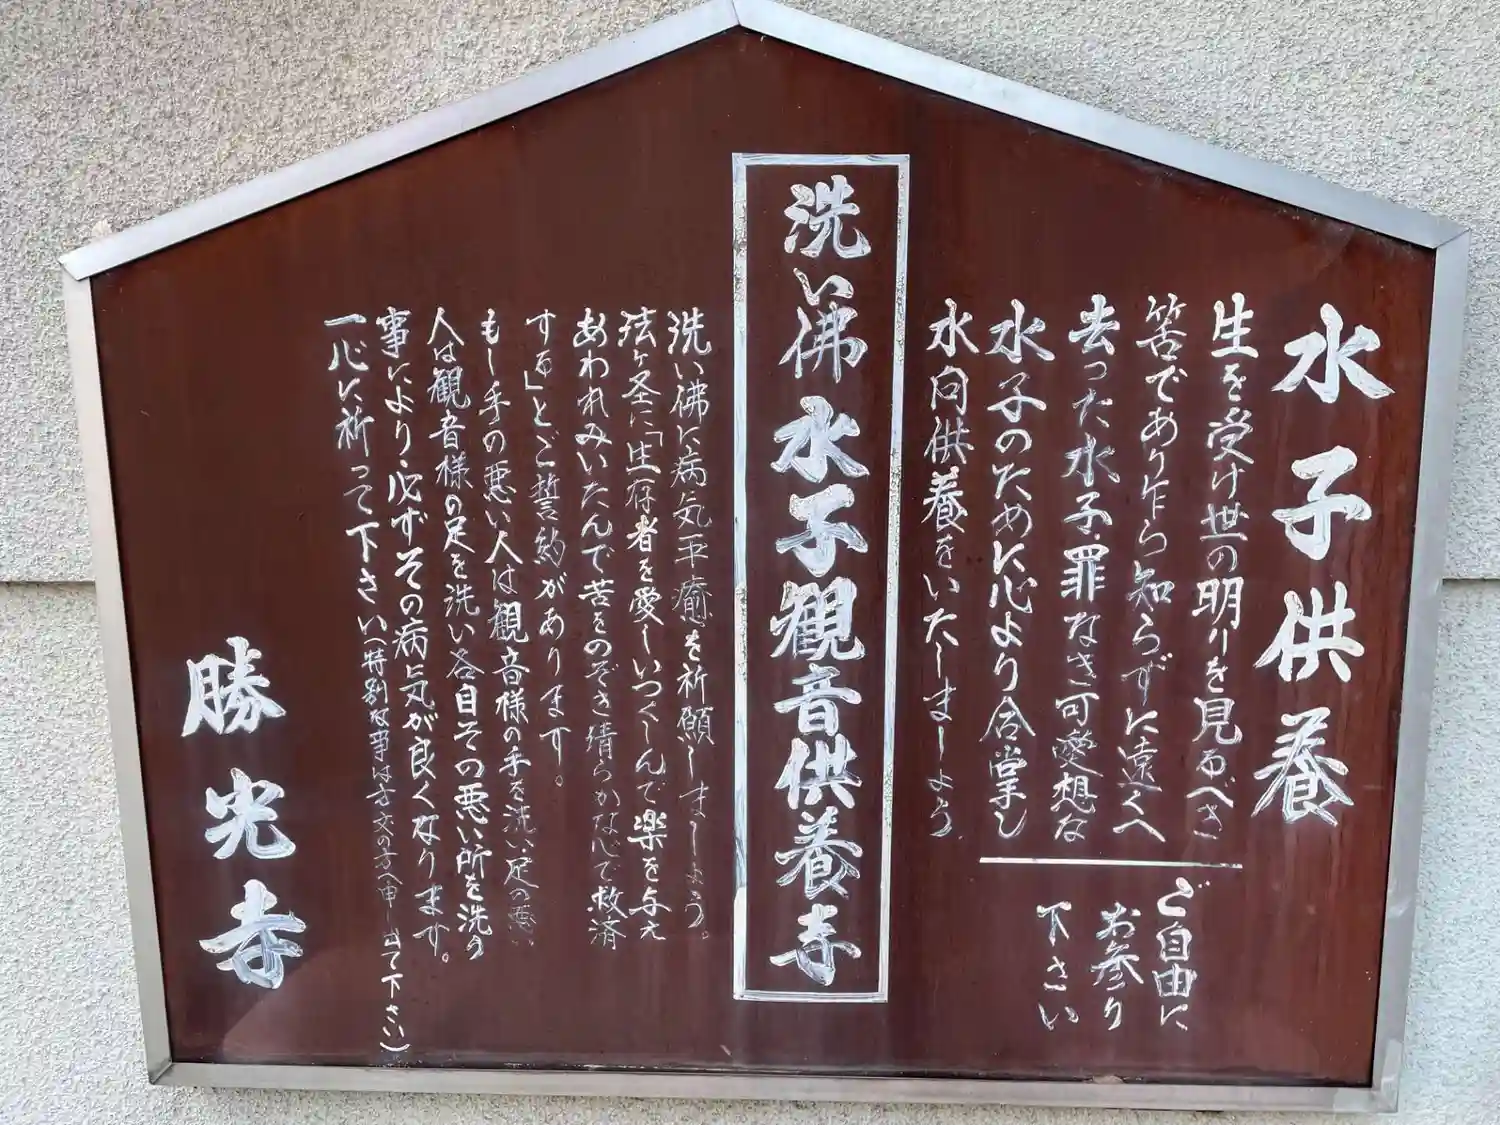 水子供養
生を受け世の明りを見るべき
筈であり乍ら知らずに遠くへ
去った水子・罪なき可愛想な
水子のために心より合掌し
水向供養をいたしましょう
ご自由に
お参り
下さい
洗い佛 水子観音供養寺
洗い佛に病気平癒を祈願しましょう。
法ヶ圣に「生存者を愛しいつくしんで楽を与え
あわれみいたんで苦をのぞき清らかな心で救済
する」とご誓約があります。
もし手の悪い人は観音様の手を洗い足の悪い
人は観音様の足を洗い各自その悪い所を洗う
事により・必ずその病気が良くなります。
一心に祈って下さい（特別な事は方丈の方へ申し出て下さい）
勝光寺